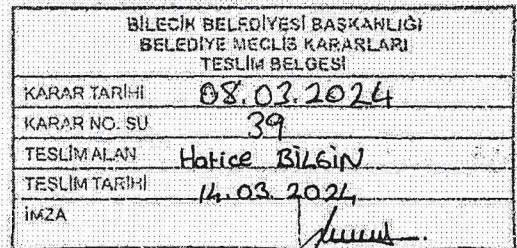 BİLECİK BELEDİYESİ BAŞKANLIĞI
BELEDİYE MECLİS KARARLARI
TESLİM BELGESİ
KARAR TARİHİ 08.03.2024
KARAR NO. SU 39
TESLİM ALAN Hatice BİLGİN
TESLİM TARİHİ 14.03.2024
İMZA